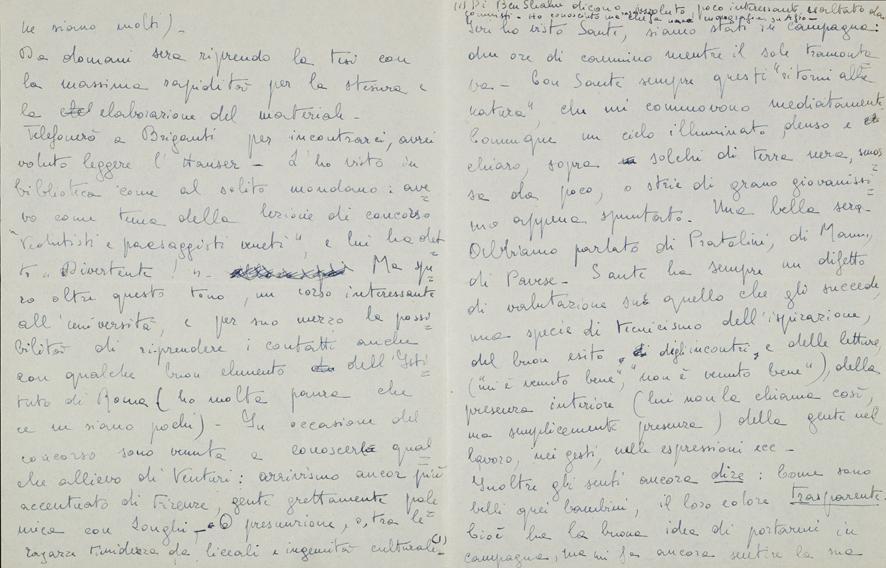 ne siamo molti) -
Da domani sera riprendo la tesi con
la massima rapidità per la stesura e
la elaborazione del materiale -
Telefonerò a Briganti per incontrarci, avrei
voluto leggere l'Hauser - L'ho visto in
biblioteca come al solito mondano: ave
vo come tema della lezione di concorso
"Vedutisti e paesaggisti veneti", e lui ha det
to "Divertente!". Ma spe
ro oltre questo tono, un corso interessante
all'università, e per suo mezzo la possi
bilità di riprendere i contatti anche
con qualche buon elemento dell'Isti
tuto di Roma (ho molta paura che
ce ne siano pochi) - In occasione del
concorso sono venuta a conoscere qual
che allievo di Venturi: arrivismo ancor più
accentuato di Firenze, gente grettamente pole
mica con Longhi - o presunzione, o, tra le
ragazze timidezza da liceali e ingenuità culturale (1)
(1) Di Ben Shahn dicono poco interessante, esaltato da
Ieri ho visto Sante, siamo stati in campagna:
due ore di cammino mentre il sole tramonta
va - Con Sante sempre questi "ritorni alla
natura", che mi commovono mediatamente
Comunque un cielo illuminato, denso e
chiaro, sopra solchi di terra nera, smos
sa da poco, o strie di grano giovanissi
mo appena spuntato. Una bella sera -
Abbiamo parlato di Pratolini, di Mann,
di Pavese - Sante ha sempre un difetto
di valutazione su quello che gli succede,
una specie di tecnicismo dell'ispirazione,
del buon esito, degli incontri, e delle letture
("mi è venuto bene", "non è venuto bene"), della
presenza interiore (lui non la chiama così,
ma semplicemente presenza) della gente nel
lavoro, nei gesti, nelle espressioni ecc -
Inoltre gli senti ancora dire: Come sono
belli quei bambini, il loro colore trasparente.
Cioè ha la buona idea di portarmi in
campagna, ma mi fa ancora sentire la sua